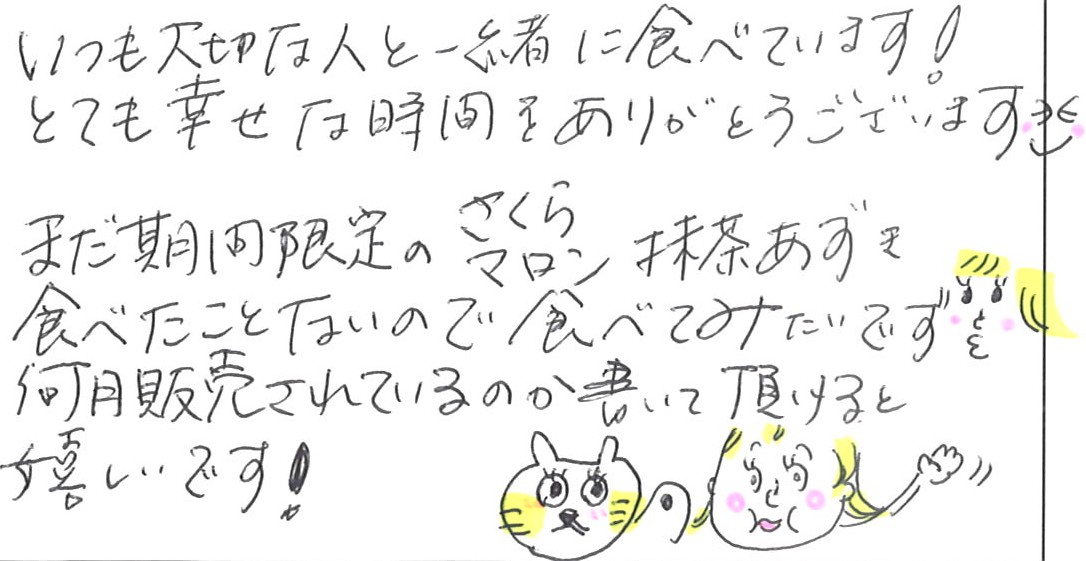 いつも大切な人と一緒に食べています!
とても幸せな時間をありがとうございます
まだ期間限定の さくら マロン 抹茶あずき
食べたことないので食べてみたいです
何月販売されているのか書いて頂けると
嬉しいです!